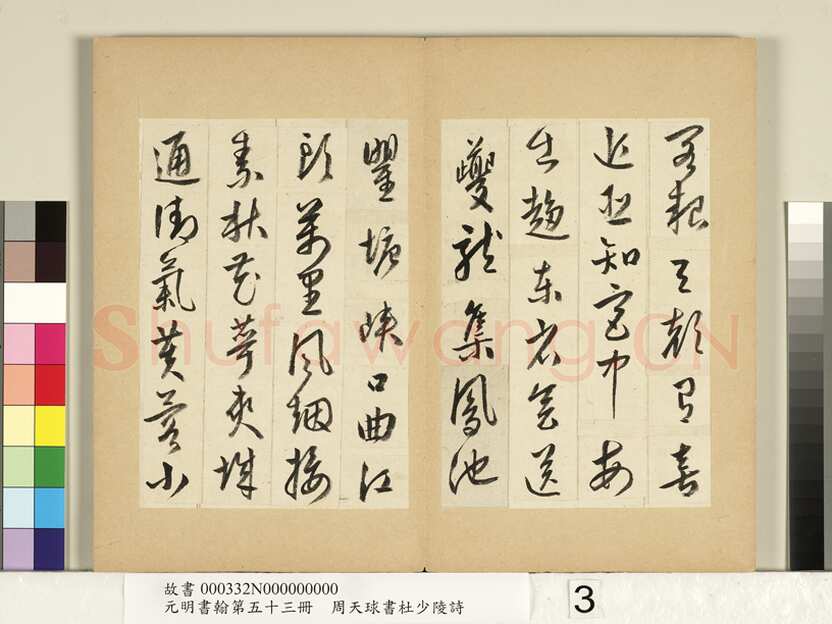 閣報天顏有喜
近臣知宮中每
出趨東省會送
夔龍集鳳池
瞿塘峽口曲江
頭萬里風烟接
素秋花萼夾城
通御氣芙蓉小
Shufawang.CN
故書 000332N000000000
元明書翰第五十三冊 周天球書杜少陵詩
3